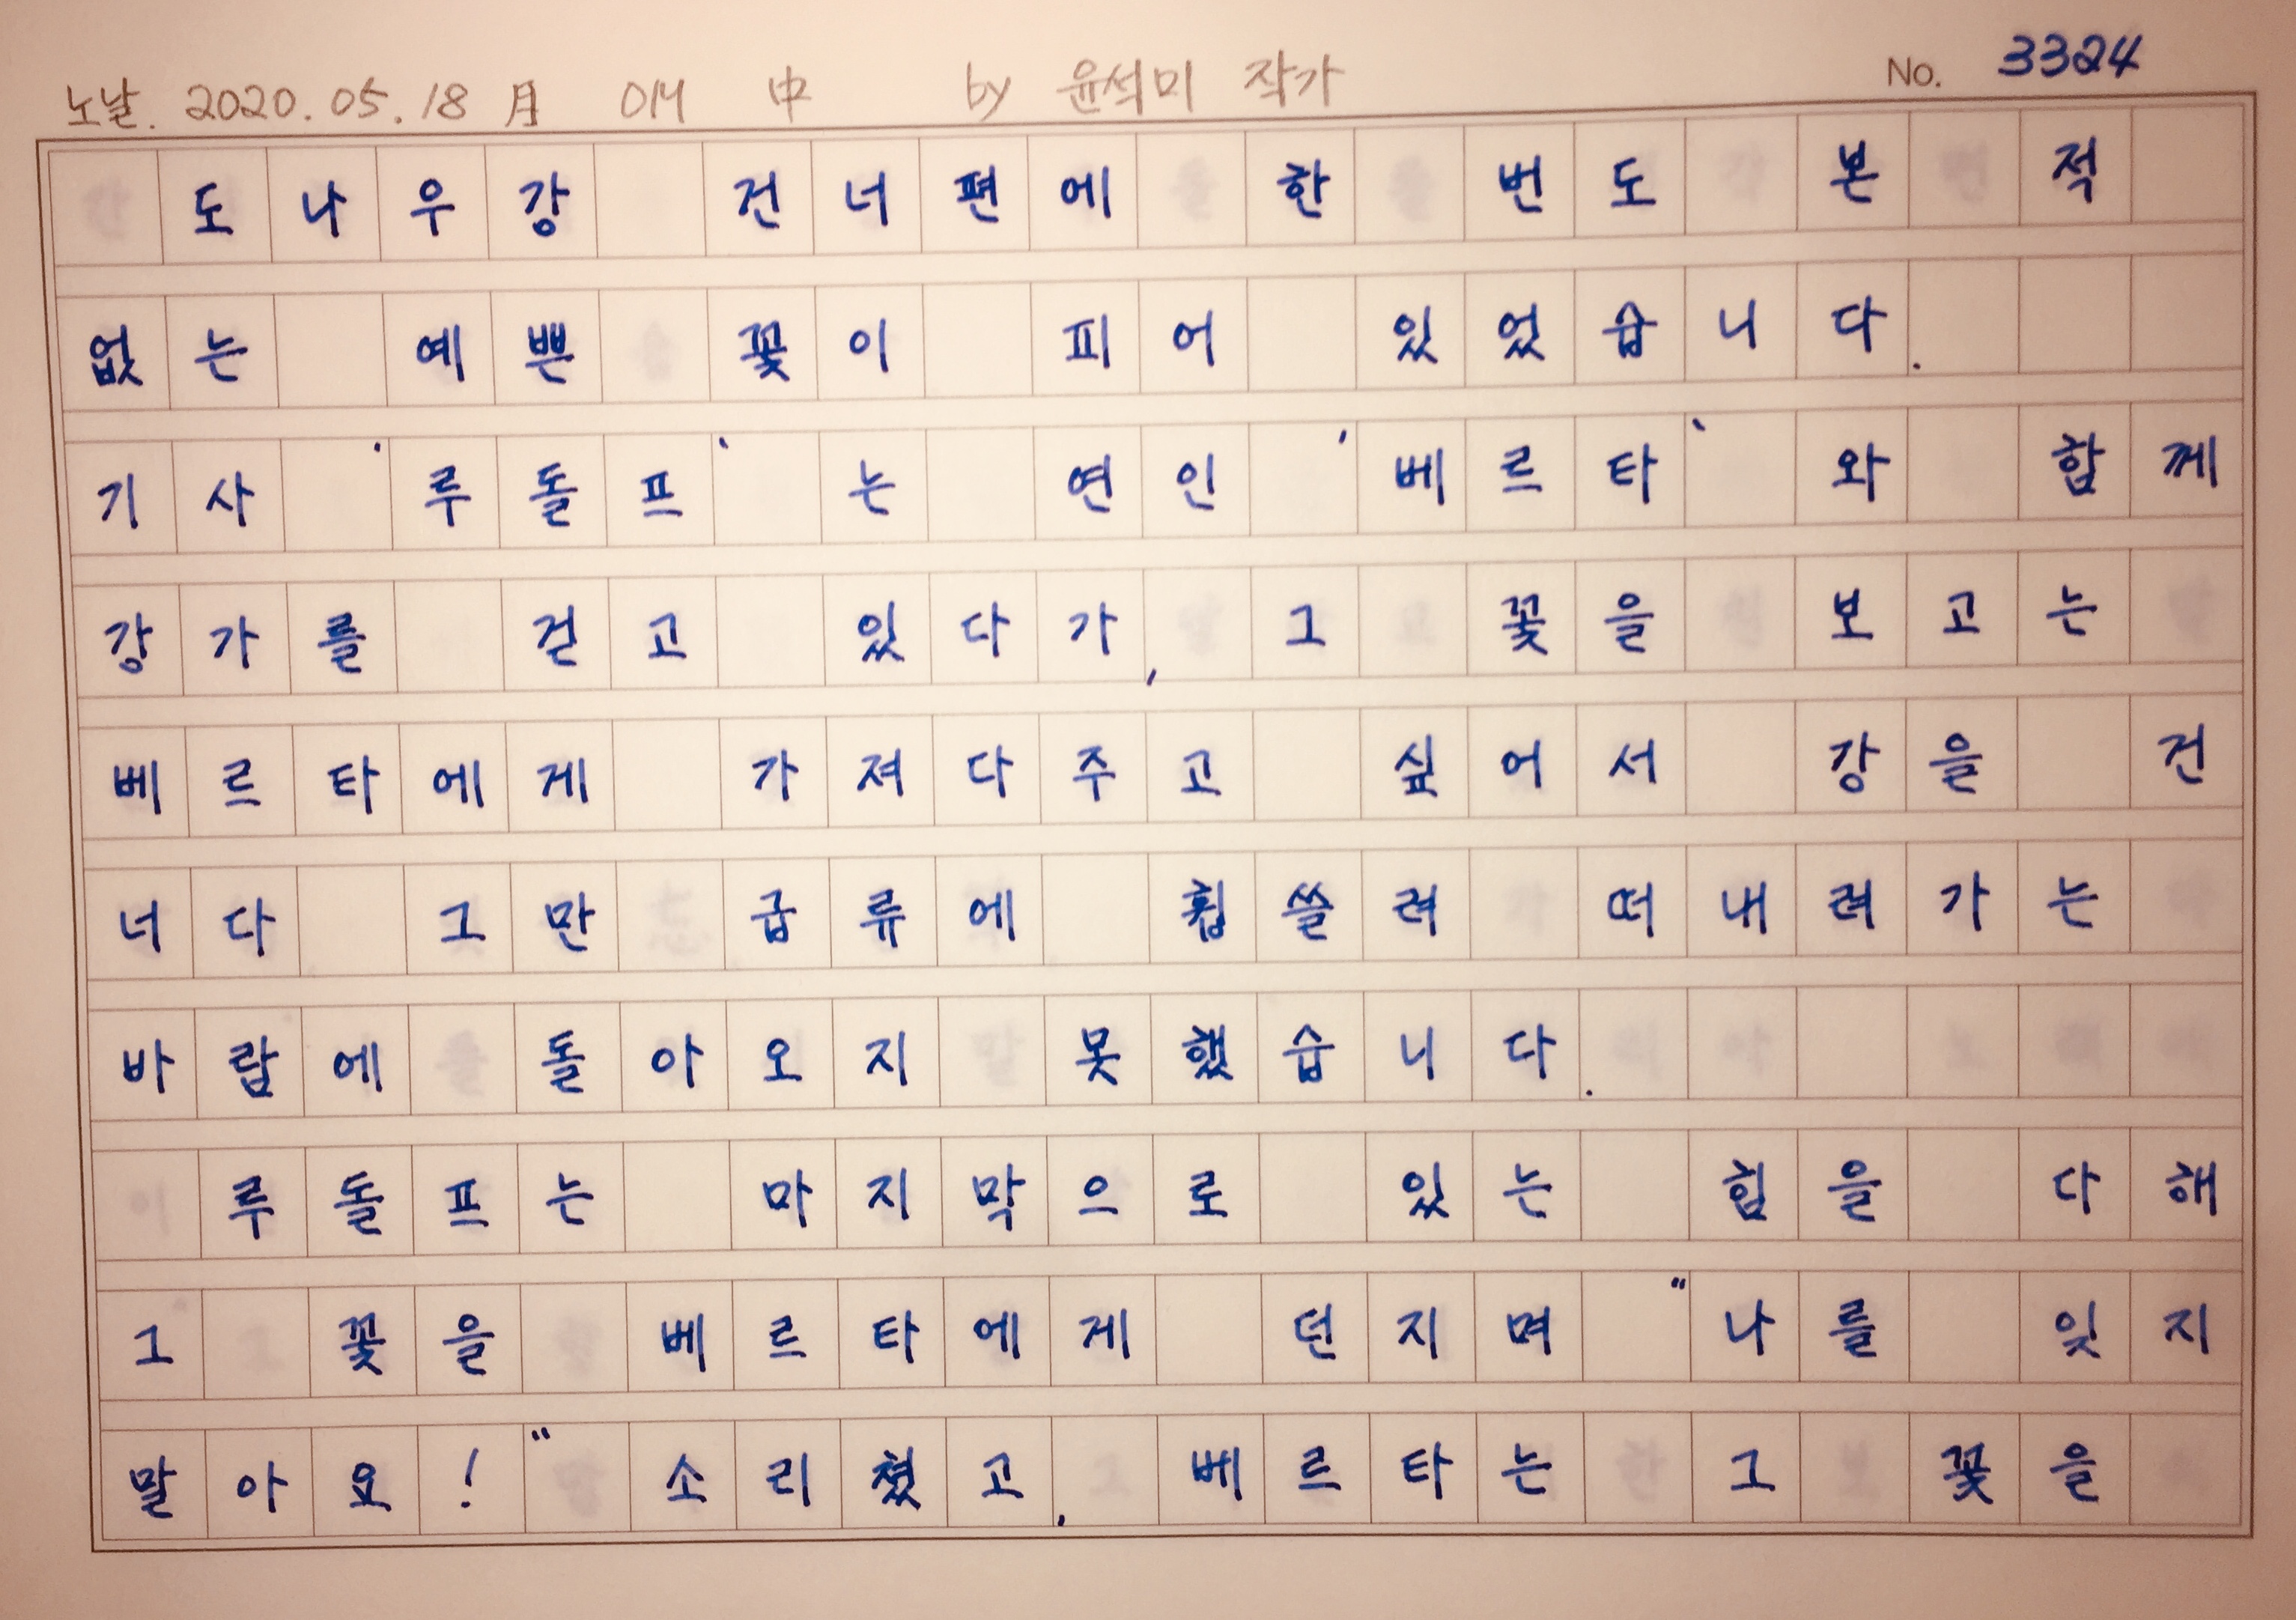 노날. 2020.05.18 月 이H 中 by 윤석미 작가 No. 3324
도나우강 건너편에 한 번도 본 적
없는 예쁜 꽃이 피어 있었습니다.
기사 '루돌프'는 연인 '베르타'와 함께
강가를 걷고 있다가, 그 꽃을 보고는
베르타에게 가져다주고 싶어서 강을 건
너다 그만 급류에 휩쓸려 떠내려가는
바람에 돌아오지 못했습니다.
루돌프는 마지막으로 있는 힘을 다해
그 꽃을 베르타에게 던지며 "나를 잊지
말아요!" 소리쳤고, 베르타는 그 꽃을